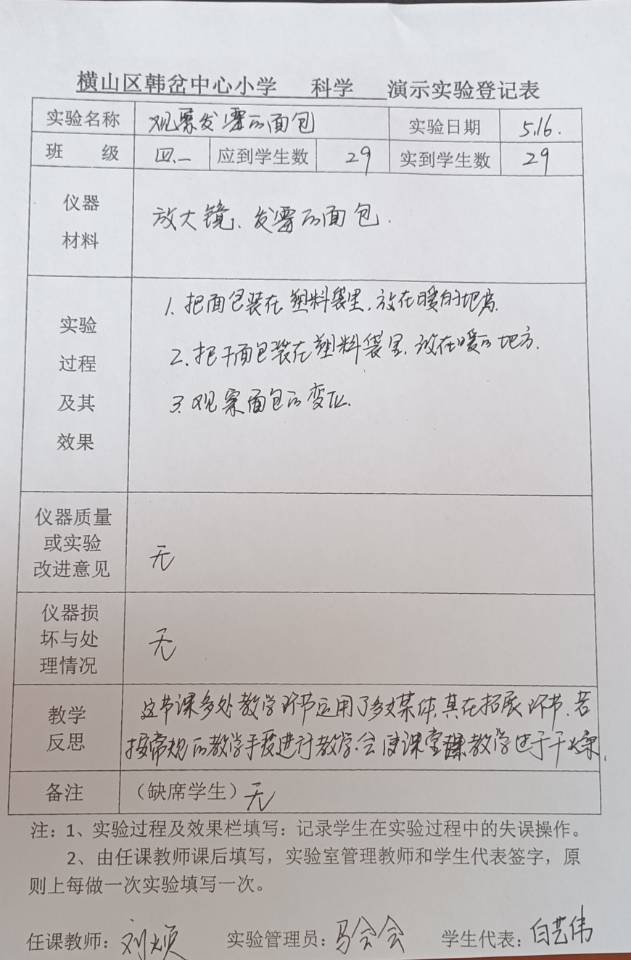 横山区韩岔中心小学 科学 演示实验登记表
实验名称 观察发霉的面包 实验日期 5.16.
班 级 四.一 应到学生数 29 实到学生数 29
仪器
材料
放大镜、发霉的面包.
实验
过程
及其
效果
1. 把面包装在塑料袋里,放在暖的地方.
2. 把干面包装在塑料袋里,放在暖的地方.
3. 观察面包的变化.
仪器质量
或实验
改进意见
无
仪器损
坏与处
理情况
无
教学
反思
这节课多处教学环节运用了多媒体,其在拓展环节.若
按常规的教学手段进行教学.会使课堂教学过于干燥.
备注 (缺席学生)无
注:1、实验过程及效果栏填写:记录学生在实验过程中的失误操作。
2、由任课教师课后填写,实验室管理教师和学生代表签字,原
则上每做一次实验填写一次。
任课教师: 刘 实验管理员:马会会 学生代表:白艺伟